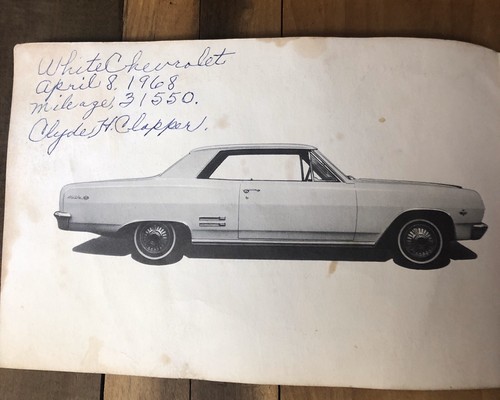 White Chevrolet
April 8. 1968
mileage, 31550.
Clyde H. Clapper.